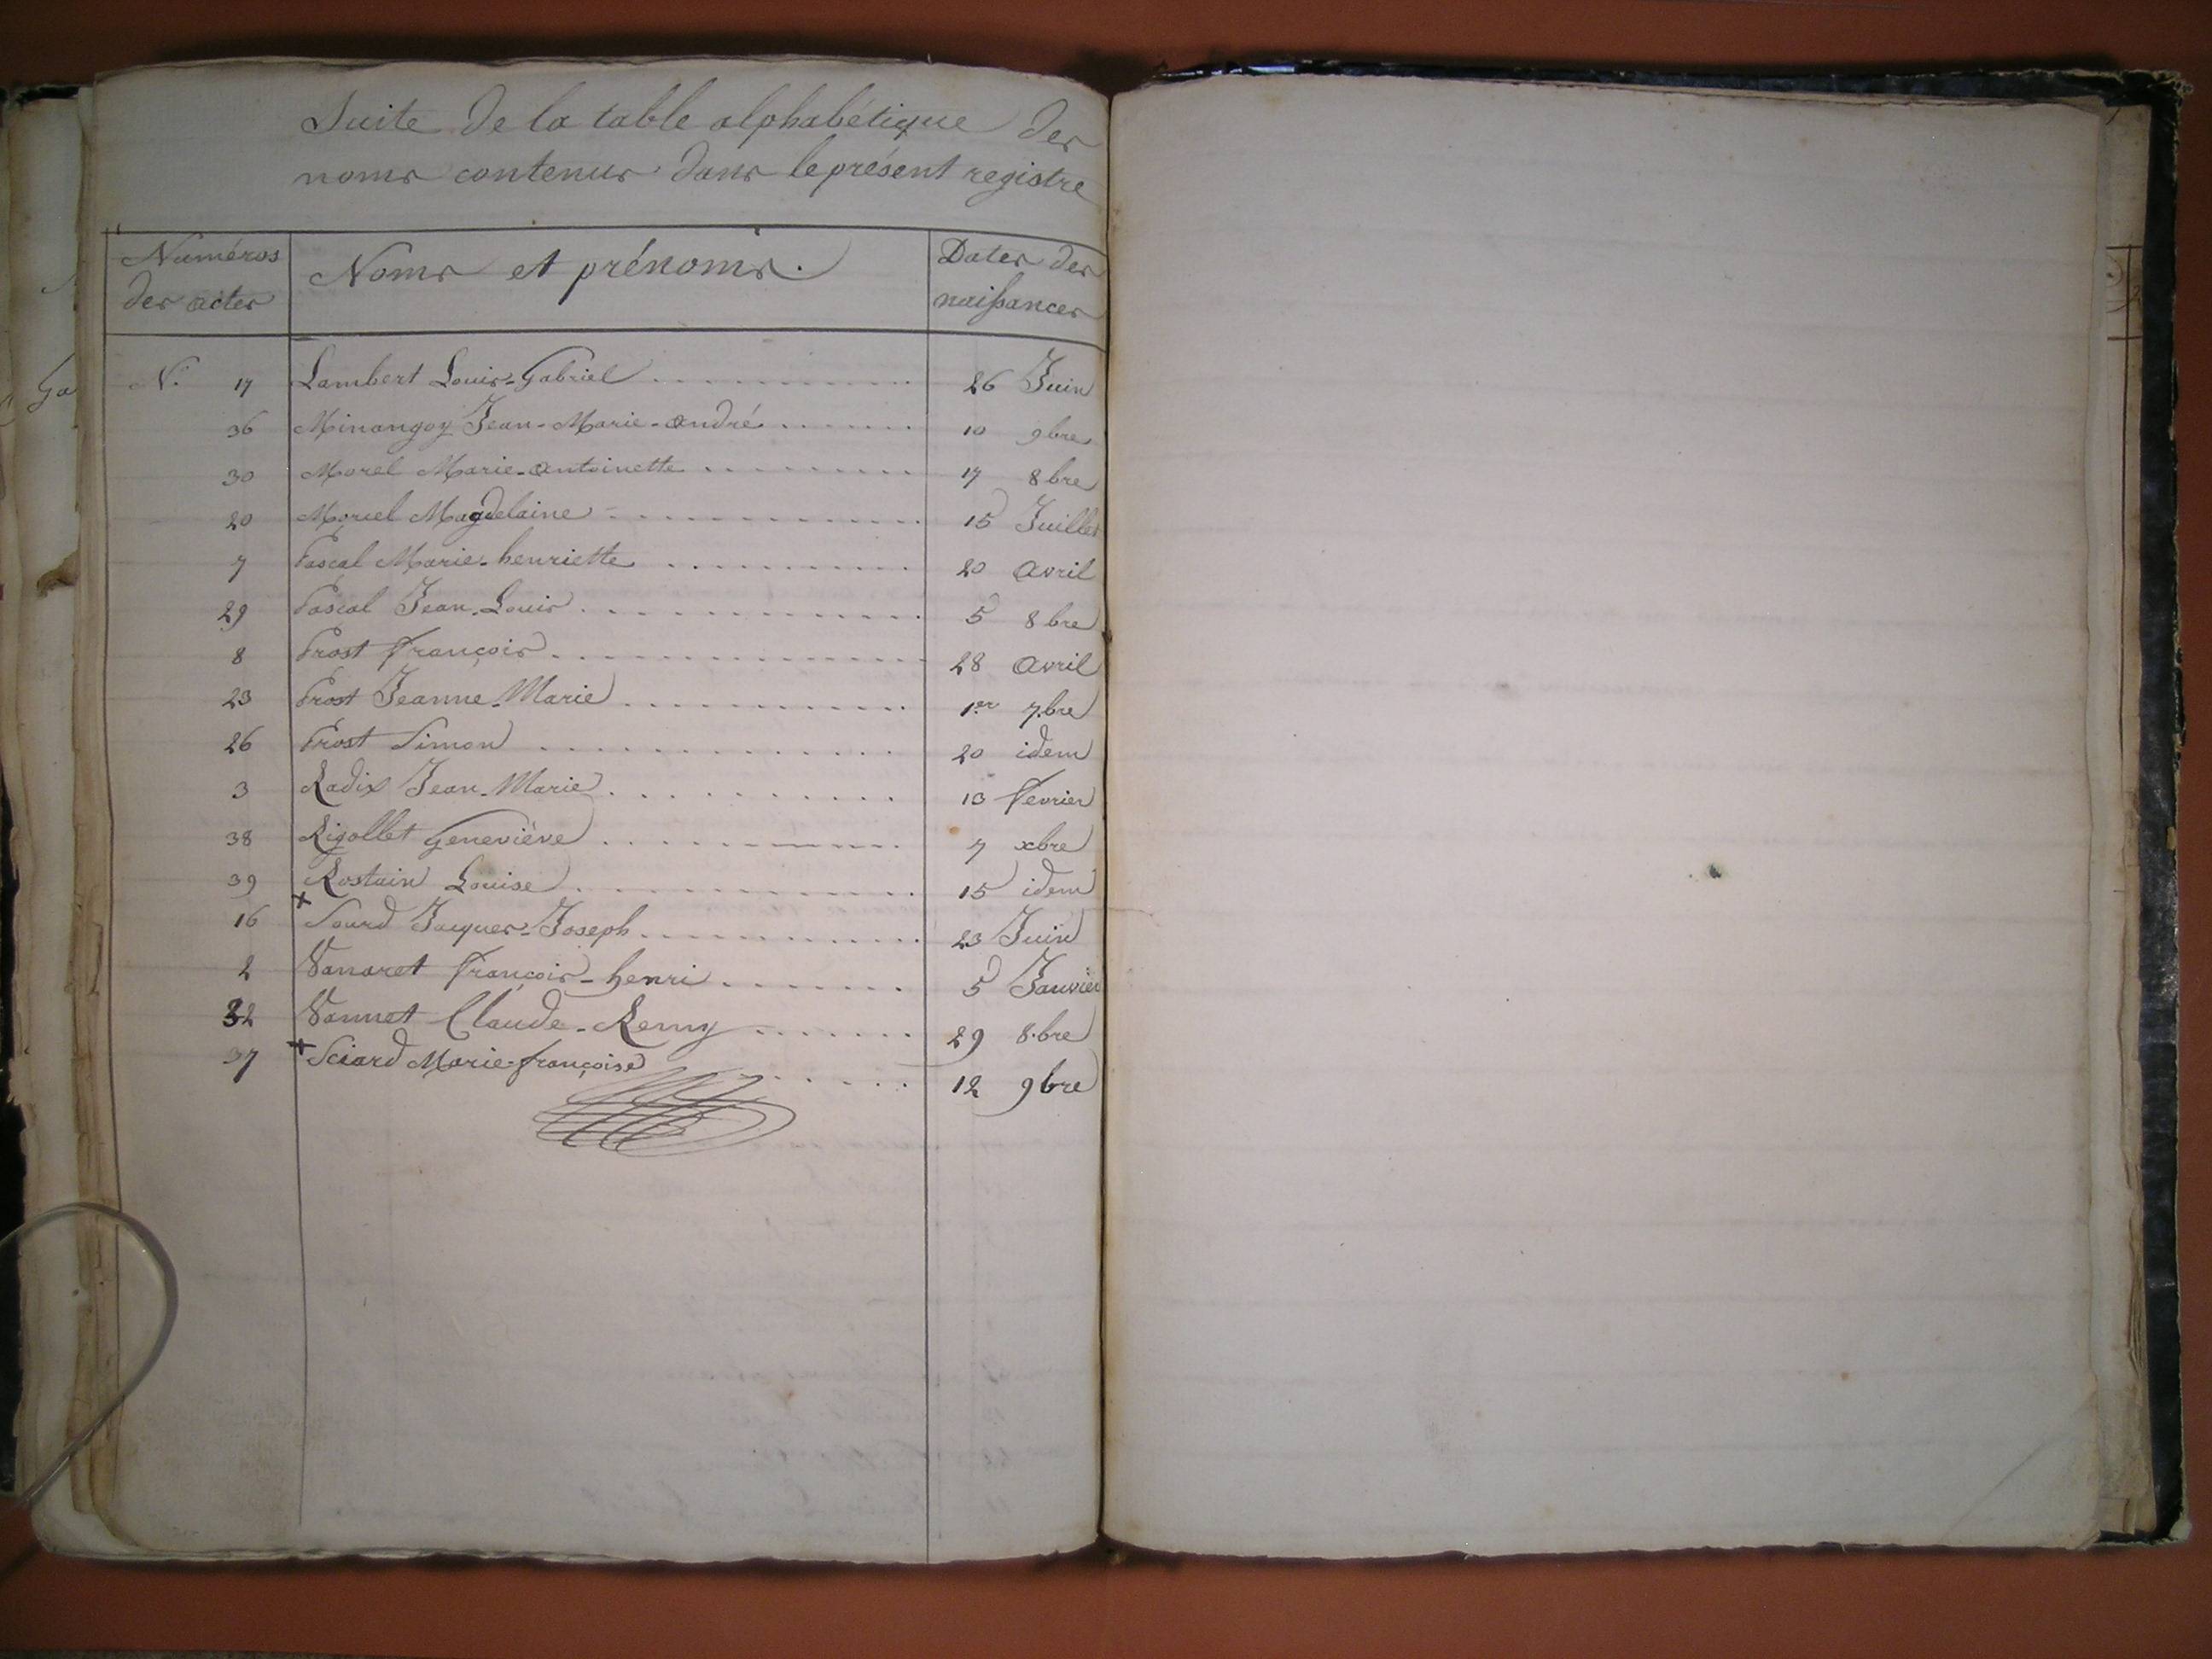 Suite de la table alphabétique des
noms contenus dans le présent registre
Numéros des actes Noms et prénoms. Dates des naissances
N.° 17 Lambert Louis-Gabriel 26 Juin
36 Minangoy Jean-Marie-andré 10 9bre
30 Morel Marie-antoinette 17 8bre
20 Moruel Magdelaine 15 Juillet
7 Pascal Marie-henriette 20 avril
29 Pascal Jean-Louis 5 8bre
8 Prost françois 28 avril
23 Prost Jeanne-Marie 1er 7bre
26 Prost Simon 20 idem
3 Radix Jean-Marie 13 fevrier
38 Rigollet Geneviève 7 xbre
39 Rostain Louise 15 idem
16 Sourd Jaques-Joseph 23 Juin
2 Vanaret françois-henri 5 Janvier
32 Vannet Claude-Remy 29 8.bre
37 Sciard Marie-françoise 12 9bre
Ga